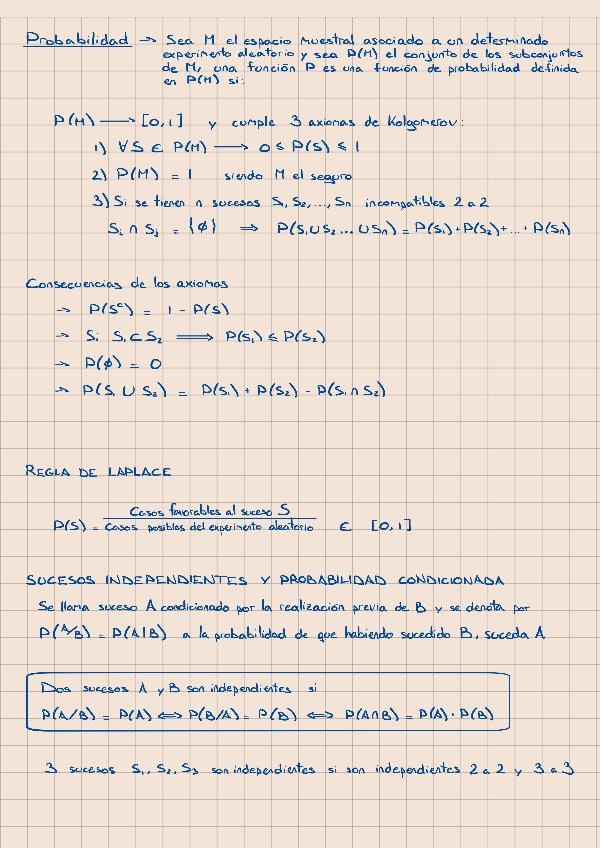 Probabilidad → Sea M el espacio muestral asociado a un determinado
experimento aleatorio y sea P(M) el conjunto de los subconjuntos
de M, una función P es una función de probabilidad definida
en P(M) si:
P(M) → [0,1] y cumple 3 axiomas de Kolgomerov:
1) ∀S ∈ P(M) → 0 ≤ P(S) ≤ 1
2) P(M) = 1 siendo M el seguro
3) Si se tienen n sucesos S₁, S₂, ..., Sn incompatibles 2 a 2
Si ∩ Sj = {∅} ⇒ P(S₁ ∪ S₂ ... ∪ Sn) = P(S₁) + P(S₂) + ... + P(Sn)
Consecuencias de los axiomas
→ P(Sᶜ) = 1 - P(S)
→ Si S₁ ⊂ S₂ ⇒ P(S₁) ≤ P(S₂)
→ P(∅) = 0
→ P(S₁ ∪ S₂) = P(S₁) + P(S₂) - P(S₁ ∩ S₂)
REGLA DE LAPLACE
Casos favorables al suceso S
P(S) = Casos posibles del experimento aleatorio ∈ [0,1]
SUCESOS INDEPENDIENTES Y PROBABILIDAD CONDICIONADA
Se llama suceso A condicionado por la realización previa de B y se denota por
P(A/B) = P(A|B) a la probabilidad de que habiendo sucedido B, suceda A
Dos sucesos A y B son independientes si
P(A/B) = P(A) ⇔ P(B/A) = P(B) ⇔ P(A∩B) = P(A) · P(B)
3 sucesos S₁, S₂, S₃ son independientes si son independientes 2 a 2 y 3 a 3